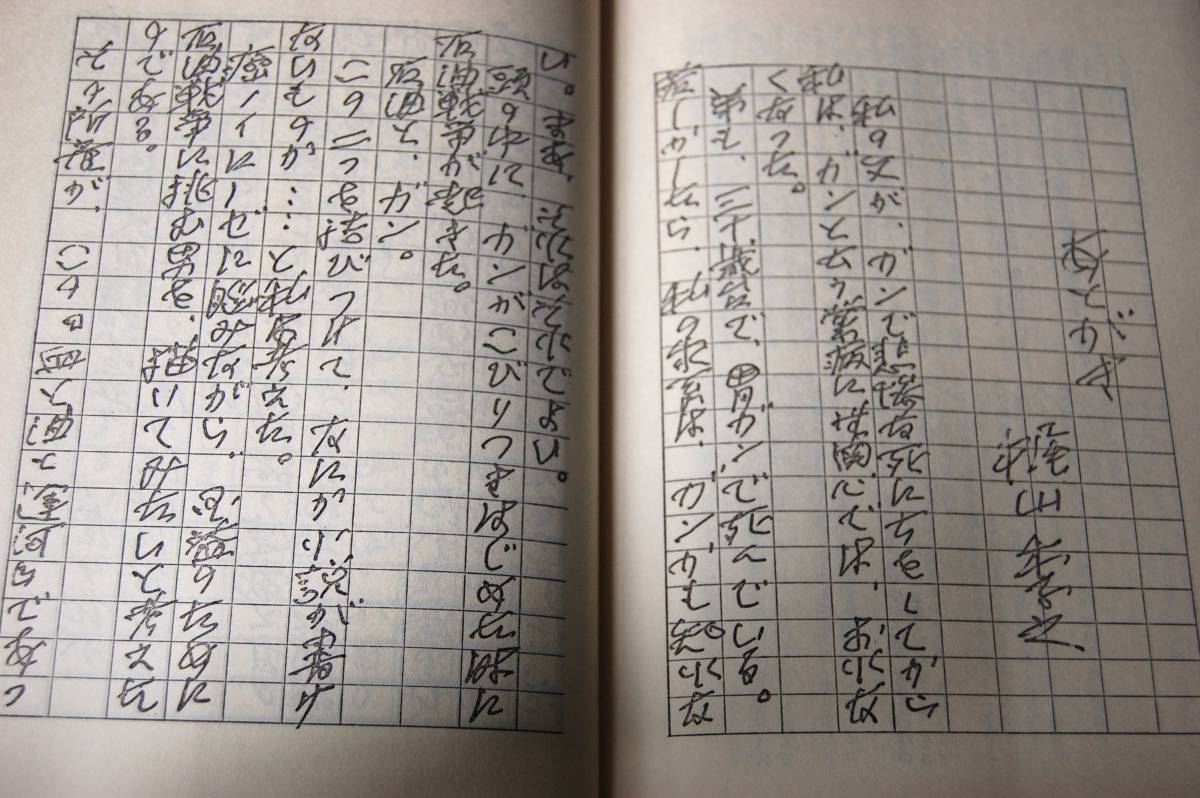 あとがき
私の父が、ガンで悲惨な死にかたをしてから
私は、ガンと云う業病に無関心では、おれな
くなった。
弟も、三十歳台で、胃ガンで死んでいる。
若しかしたら、私の家系は、ガンかも知れな
い。まあ、それはそれでよい。
頭の中に、ガンがこびりつきはじめた頃に
石油戦争が起きた。
石油と、ガン。
この二つを結びつけて、なにか小説が書け
ないものか……と私は考えた。
癌ノイローゼに悩みながら、のために
石油戦争に挑む男を、描いてみたいと考えた
のである。
その所産が、この であっ